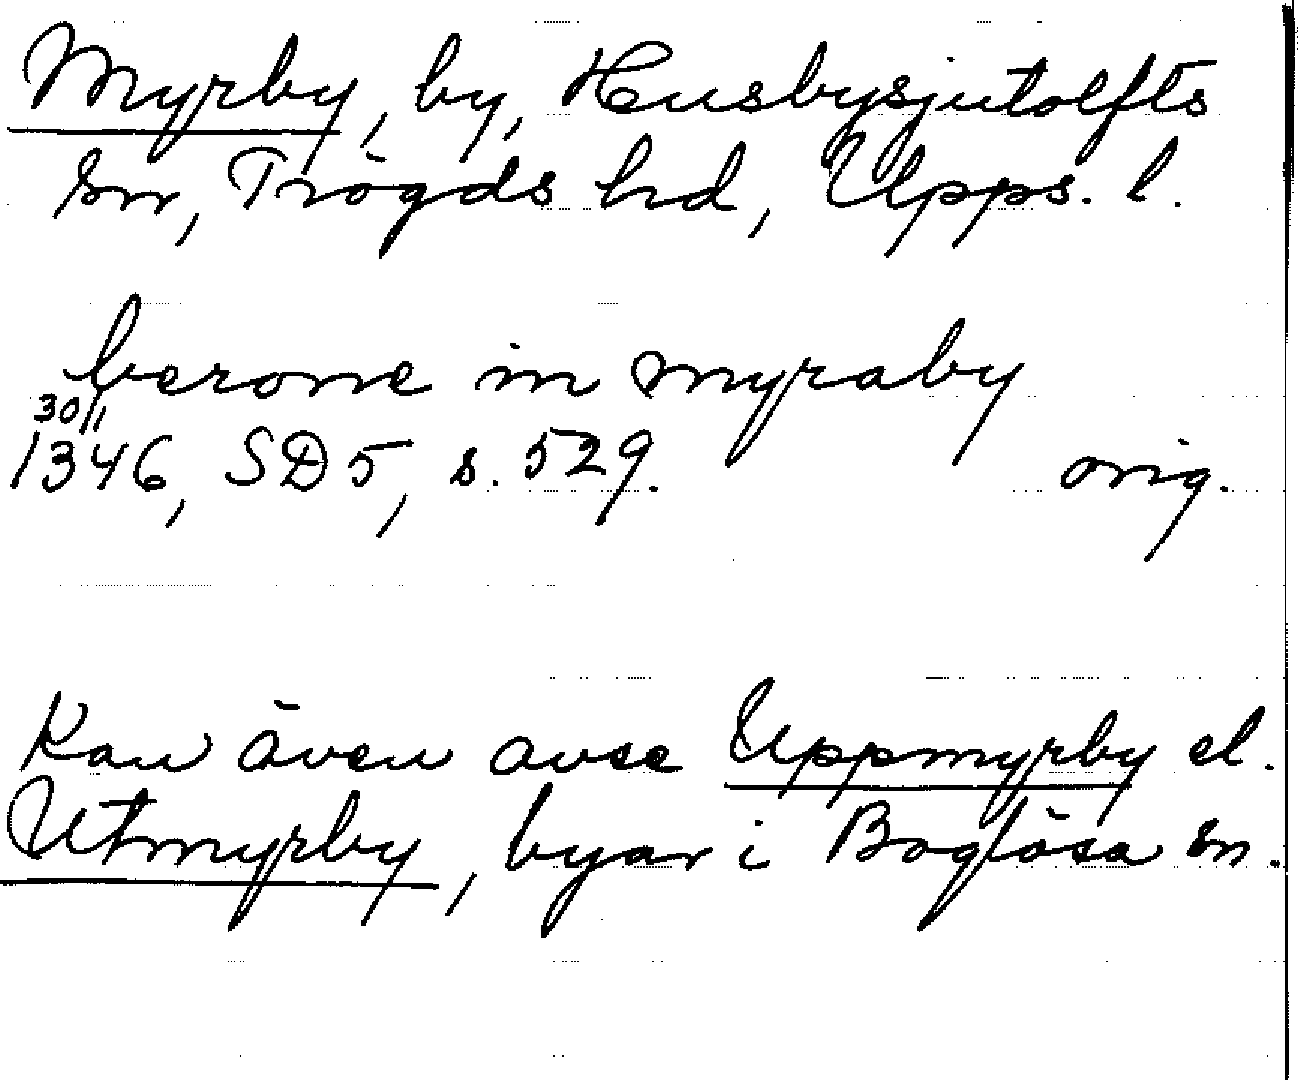 Myrby, by, Husbysjutolfts
sn, Trögds hd, Upps. l.
berone in myraby
30/1
1346, SD 5, s. 529. orig.
Kan även avse Uppmyrby el.
Utmyrby, byar i Boglösa sn.